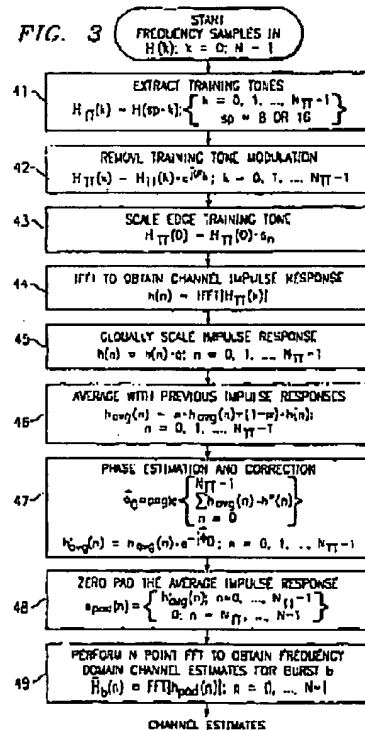 FIG. 3
START
FREQUENCY SAMPLES IN
H(k); k = 0; N - 1
41
EXTRACT TRAINING TONES
k = 0, 1, ..., N_TT-1
H_TT(k) = H(sp·k);
sp = 8 OR 16
42
REMOVE TRAINING TONE MODULATION
H_TT(k) = H_TT(k)· k = 0, 1, ... N_TT-1
43
SCALE EDGE TRAINING TONE
H_TT(0) = H_TT(0)·
44
IFFT TO OBTAIN CHANNEL IMPULSE RESPONSE
h(n) = IFFT[H_TT(k)]
45
GLOBALLY SCALE IMPULSE RESPONSE
h(n) = h(n)·a; n = 0, 1, ... N_TT-1
46
AVERAGE WITH PREVIOUS IMPULSE RESPONSES
n = 0, 1, ... N_TT-1
47
PHASE ESTIMATION AND CORRECTION
N_TT-1
n = 0
n = 0, 1, ... N_TT-1
48
ZERO PAD THE AVERAGE IMPULSE RESPONSE
h'avg(n); n=0, ..., N_TT-1
0; n = N_TT, ..., N-1
49
PERFORM N POINT FFT TO OBTAIN FREQUENCY
DOMAIN CHANNEL ESTIMATES FOR BURST b
= FFT[h_pad(n)]; n = 0, ... N-1
CHANNEL ESTIMATES